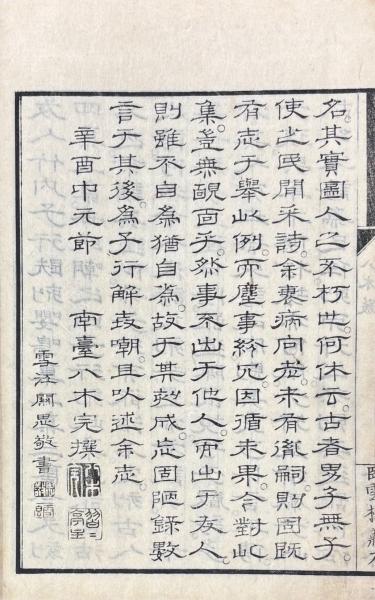 名其實圖人之不朽也。何休云。古者男子無子。
使之民間采詩。余衰病向老。未有胤嗣。則固既
有志于舉此例。而塵事紛冗。因循未果。今對此
集。豈無靦面乎。然事不出于他人。而出于友人。
則雖不自為。猶自為。故于其刻成。忘固陋。錄數
言于其後。為子行解嘲。且以述余志。
辛酉中元節 南臺八木完撰
雪江關思敬書